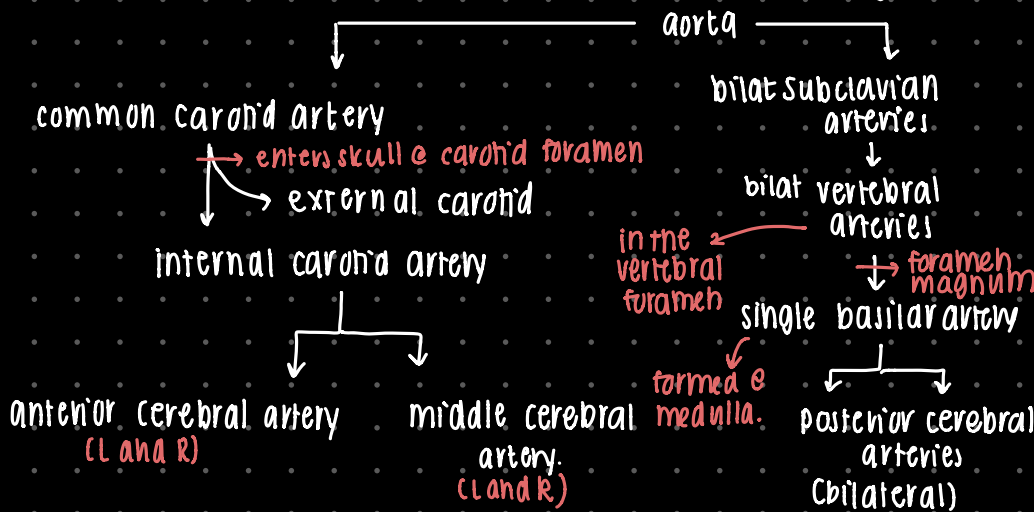 aorta
common carotid artery
enters skull @ carotid foramen
external carotid
internal carotid artery
anterior cerebral artery
(L and R)
middle cerebral
artery.
(L and R)
bilat subclavian
arteries
bilat vertebral
arteries
in the
vertebral
foramen
foramen
magnum
single basilar artery
formed @
medulla.
posterior cerebral
arteries
(bilateral)